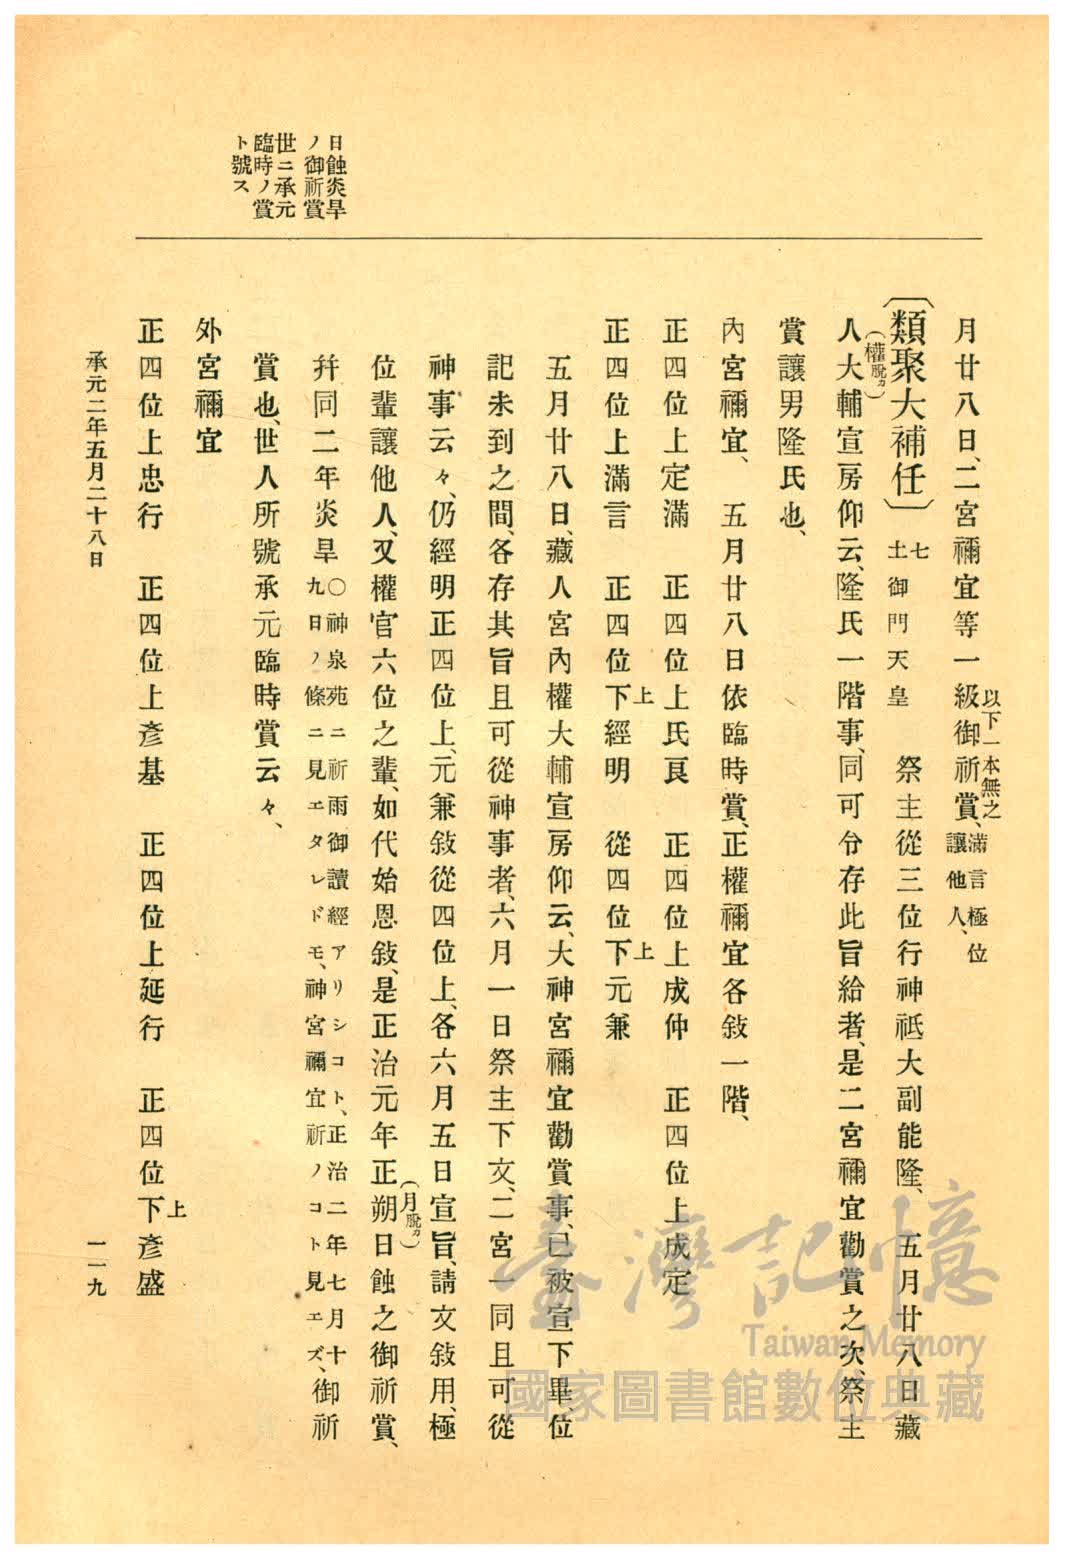 日蝕炎旱
ノ御祈賞
世ニ承元
臨時ノ賞
ト號ス
月廿八日、二宮禰宜等一級御祈賞、以下一本無之滿言極位讓他人、
〔類聚大補任〕七土御門天皇 祭主從三位行神祗大副能隆、五月廿八日藏
人(權脫カ)大輔宣房仰云、隆氏一階事、同可令存此旨給者、是二宮禰宜勸賞之次、祭主
賞讓男隆氏也、
內宮禰宜、五月廿八日依臨時賞、正權禰宜各敍一階、
正四位上定滿 正四位上氏良 正四位上成仲 正四位上成定
正四位上滿言 正四位下上經明 從四位下上元兼
五月廿八日、藏人宮內權大輔宣房仰云、大神宮禰宜勸賞事、已被宣下畢、位
記未到之間、各存其旨且可從神事者、六月一日祭主下文、二宮一同且可從
神事云々、仍經明正四位上、元兼敍從四位上、各六月五日宣旨、請文敍用、極
位輩讓他人、又權官六位之輩、如代始恩敍、是正治元年正(月脫カ)朔日蝕之御祈賞、
幷同二年炎旱〇神泉苑ニ祈雨御讀經アリシコト、正治二年七月十九日ノ條ニ見エタレドモ、神宮禰宜祈ノコト見エズ、御祈
賞也、世人所號承元臨時賞云々、
外宮禰宜
正四位上忠行 正四位上彥基 正四位上延行 正四位下上彥盛
承元二年五月二十八日
一一九
臺灣記憶
Taiwan Memory
國家圖書館數位典藏